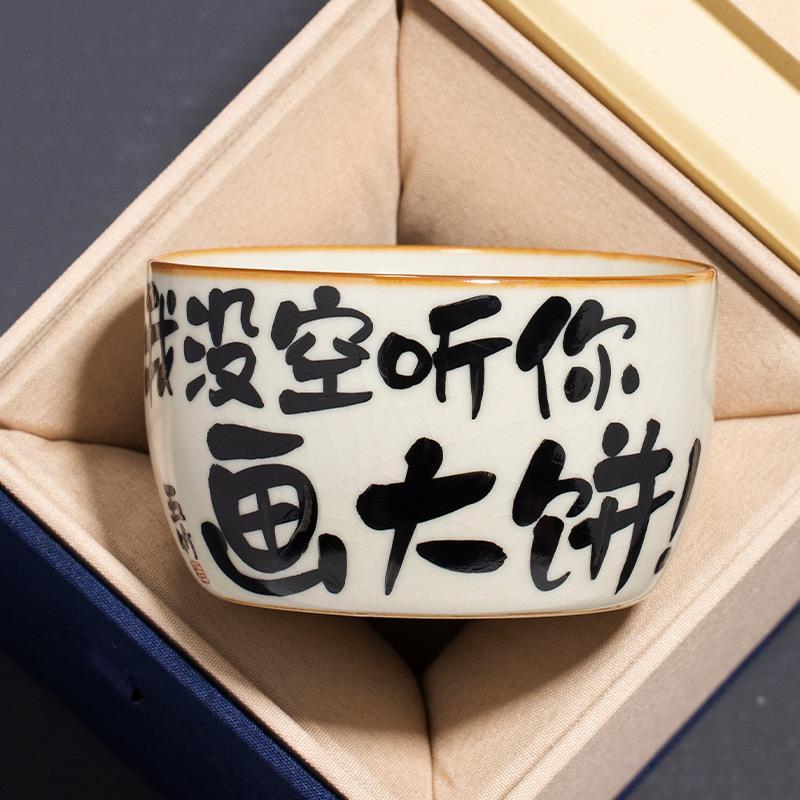 我没空听你
画大饼！